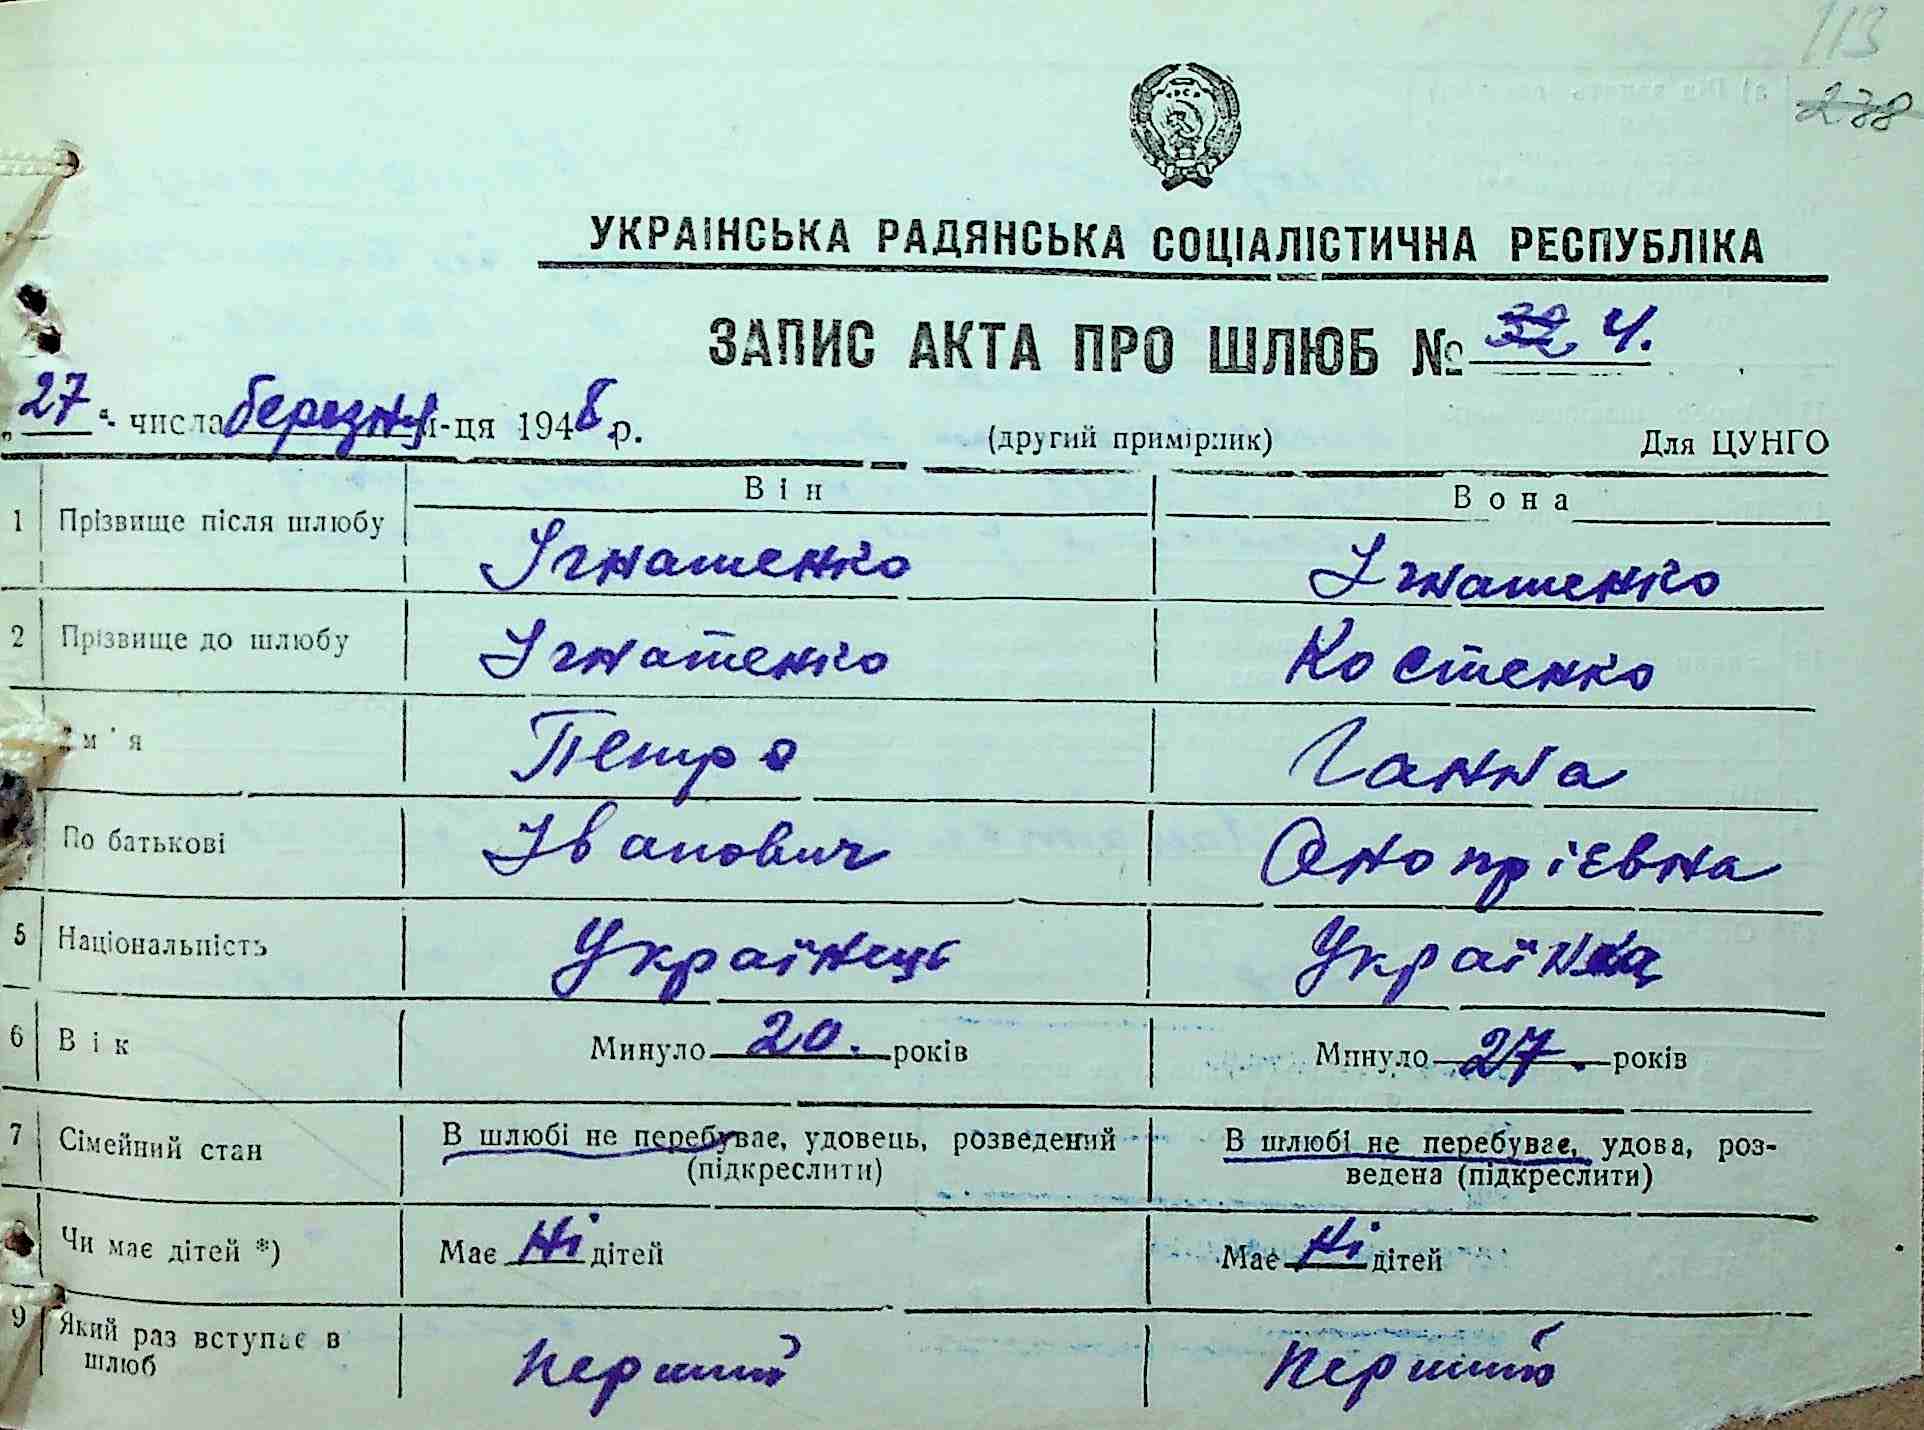 113
238
УКРАЇНСЬКА РАДЯНСЬКА СОЦІАЛІСТИЧНА РЕСПУБЛІКА
ЗАПИС АКТА ПРО ШЛЮБ № 32 4.
„27“ числа березня м-ця 1948 р. (другий примірник) Для ЦУНГО
Він Вона
1 Прізвище після шлюбу Ігнатенко Ігнатенко
2 Прізвище до шлюбу Ігнатенко Костенко
Ім'я Петро Ганна
По батькові Іванович Онопрієвна
5 Національність Українець Українка
6 Вік Минуло 20. років Минуло 27. років
7 Сімейний стан В шлюбі не перебуває, удовець, розведений (підкреслити) В шлюбі не перебуває, удова, роз-
ведена (підкреслити)
Чи має дітей *) Має Ні дітей Має Ні дітей
9 Який раз вступає в
шлюб перший перший